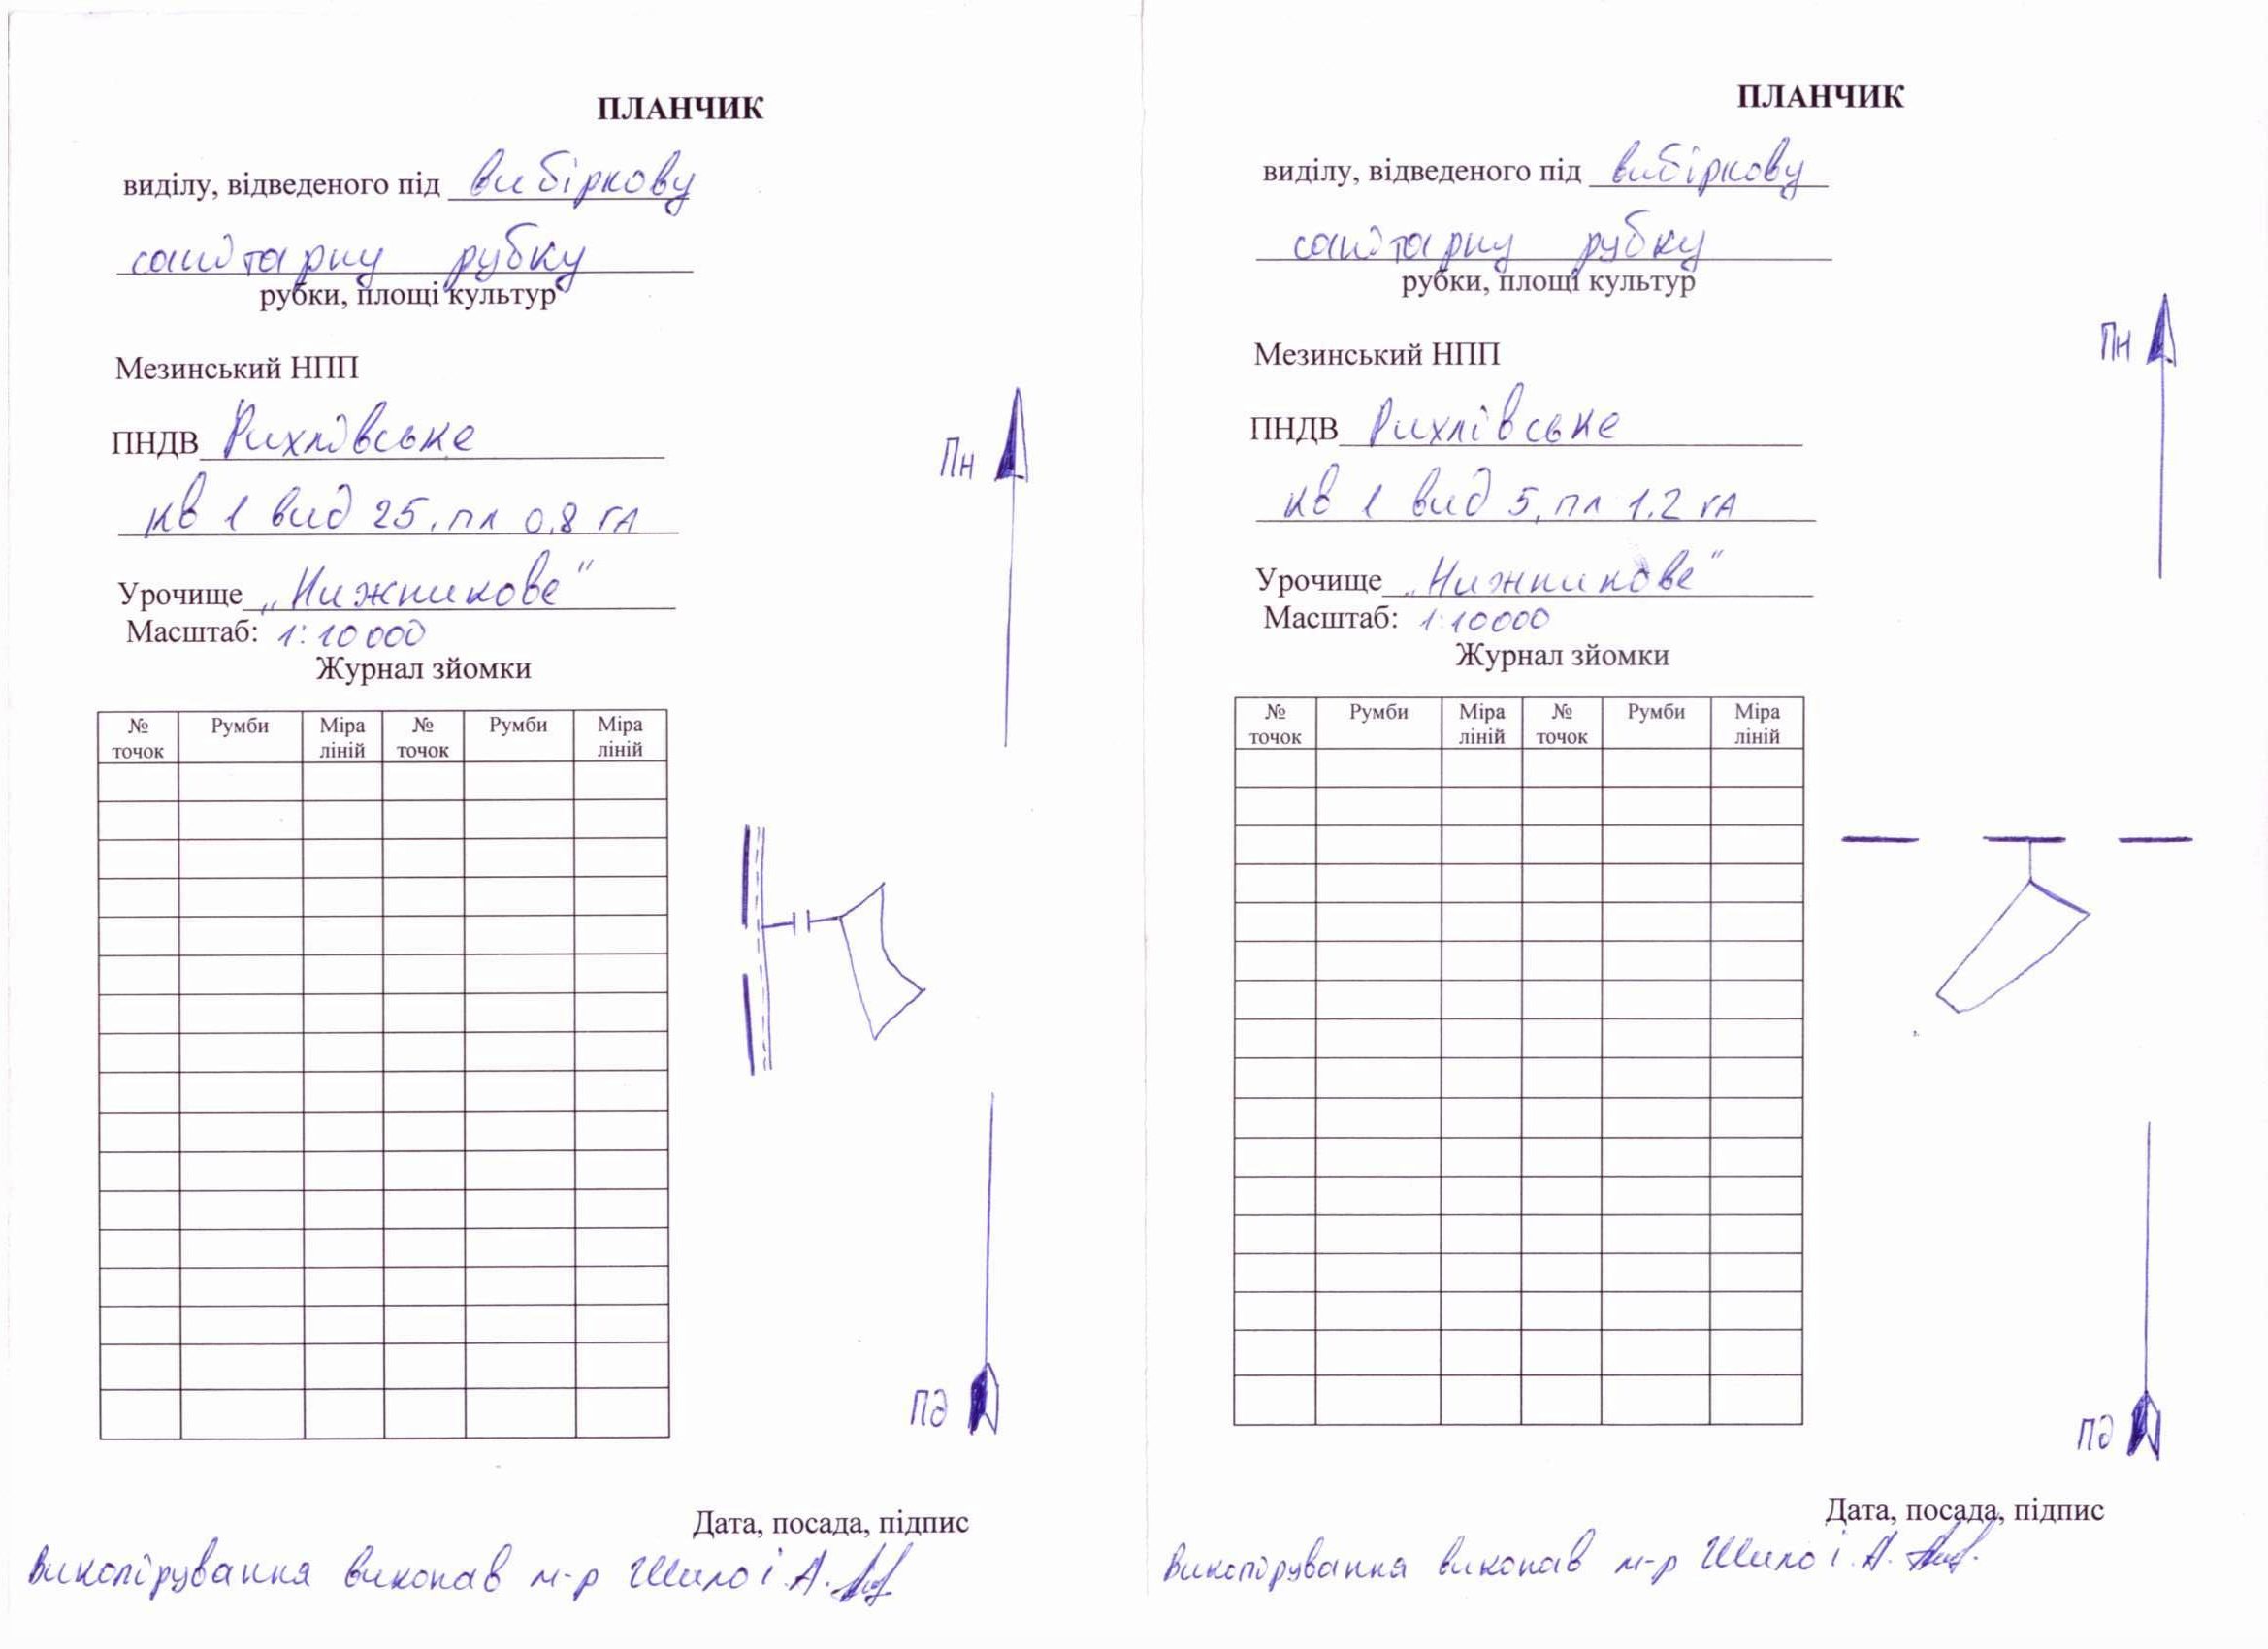 ПЛАНЧИК
виділу, відведеного під вибіркову
санітарну рубку
рубки, площі культур
Мезинський НПП
ПНДВ Рихлівське
кв 1 вид 25, пл 0,8 га
Урочище „Нижникове"
Масштаб: 1:10000
Журнал зйомки
№ точок Румби Міра ліній № точок Румби Міра ліній
Пн
Пд
Дата, посада, підпис
Викопірування виконав м-р Шило І.А.
ПЛАНЧИК
виділу, відведеного під вибіркову
санітарну рубку
рубки, площі культур
Мезинський НПП
ПНДВ Рихлівське
кв 1 вид 5, пл 1.2 га
Урочище „Нижникове"
Масштаб: 1:10000
Журнал зйомки
№ точок Румби Міра ліній № точок Румби Міра ліній
Пн
Пд
Дата, посада, підпис
Викопірування виконав м-р Шило І.А.